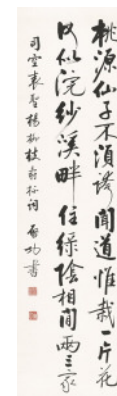 桃源仙子不須誇聞道惟栽一片花
何似浣紗溪畔住綠陰相間兩三家
司空表聖楊柳枝壽杯詞 啟功書